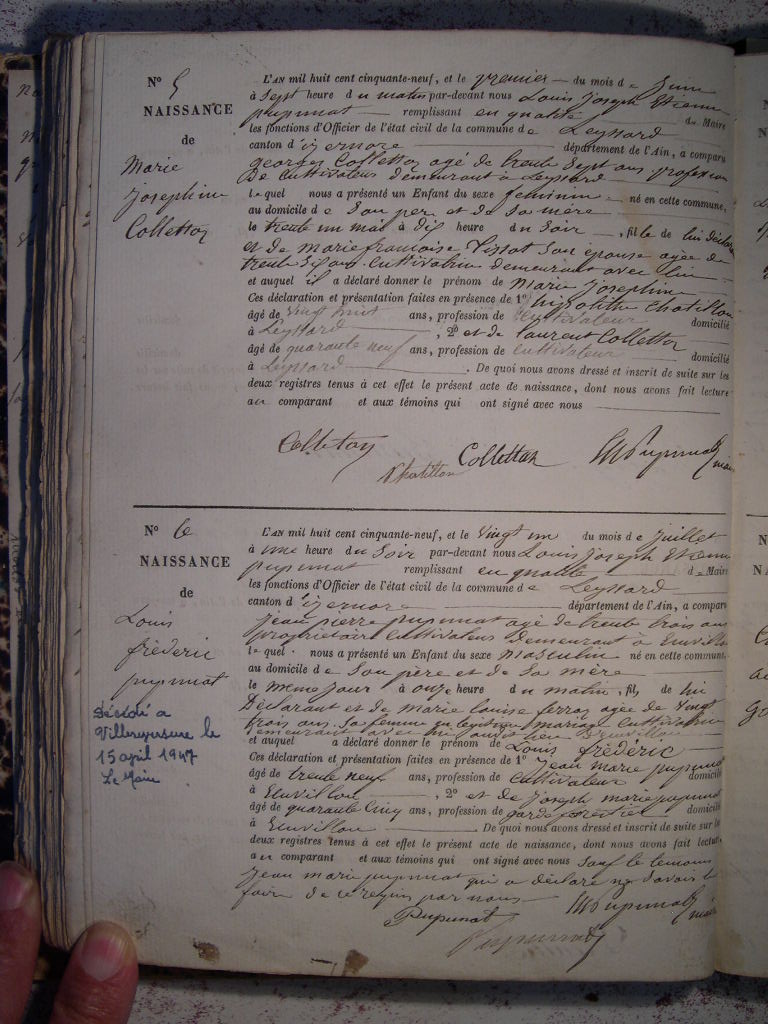 N° 5
NAISSANCE
de
Marie
Josephine
Colletton
L'AN mil huit cent cinquante-neuf, et le premier du mois de Juin
à Sept heure du matin par-devant nous Louis Joseph Etienne
pupunat remplissant en qualité de Maire
les fonctions d'Officier de l'état civil de la commune de Leyssard
canton d'izernore département de l'Ain, a comparu
georges Colletton agé de trente Sept ans profession
De Cultivateur demeurant à Leyssard
lequel nous a présenté un Enfant du sexe feminin né en cette commune,
au domicile de Son per et de Sa mère
le trente un mai à dix heure du Soir, fille de lui déclarant
et de marie francoise Tissot Son epouse agée de
trente Six ans Cultivatrice demeurant avec lui
et auquel il a déclaré donner le prénom de Marie Josephine
Ces déclaration et présentation faites en présence de 1° hipolithe Chatillon
âgé de vingt huit ans, profession de Cultivateur domicilié
à Leyssard, 2° et de laurent Colletton
âgé de quarante neuf ans, profession de Cultivateur domicilié
à Leyssard. De quoi nous avons dressé et inscrit de suite sur les
deux registres tenus à cet effet le présent acte de naissance, dont nous avons fait lecture
au comparant et aux témoins qui ont signé avec nous
Colleton
Chatillon
Colletton
Pupunat maire
N° 6
NAISSANCE
de
Louis
frèderic
pupunat
Décédé à
Villereversure le
15 april 1947
Le Maire
L'AN mil huit cent cinquante-neuf, et le Vingt un du mois de Juillet
à une heure du Soir par-devant nous Louis Joseph Etienne
pupunat remplissant en qualité de Maire
les fonctions d'Officier de l'état civil de la commune de Leyssard
canton d'izernore département de l'Ain, a comparu
Jean pierre pupunat agé de trente trois ans
proprietaire Cultivateur Demeurant à Euvillou
lequel nous a présenté un Enfant du sexe masculin né en cette commune,
au domicile de Son père et de Sa mère
le meme jour à onze heure du matin, fils de lui
Déclarant et de marie louise ferroz agée de Vingt
trois ans Sa femme en legitime mariage Cultivatrice
demeurant avec lui audit lieu Deuvillou
et auquel a déclaré donner le prénom de Louis frèderic
Ces déclaration et présentation faites en présence de 1° Jean Marie pupunat
âgé de trente neuf ans, profession de Cultivateur domicilié
à Euvillou, 2° et de Joseph marie pupunat
âgé de quarante Cinq ans, profession de garde forestier domicilié
à Euvillou. De quoi nous avons dressé et inscrit de suite sur les
deux registres tenus à cet effet le présent acte de naissance, dont nous avons fait lecture
au comparant et aux témoins qui ont signé avec nous Sauf le temoin
Jean marie pupunat qui a déclaré ne Savoir le
faire de ce requis par nous
Pupunat
Pupunat maire
Pupunat